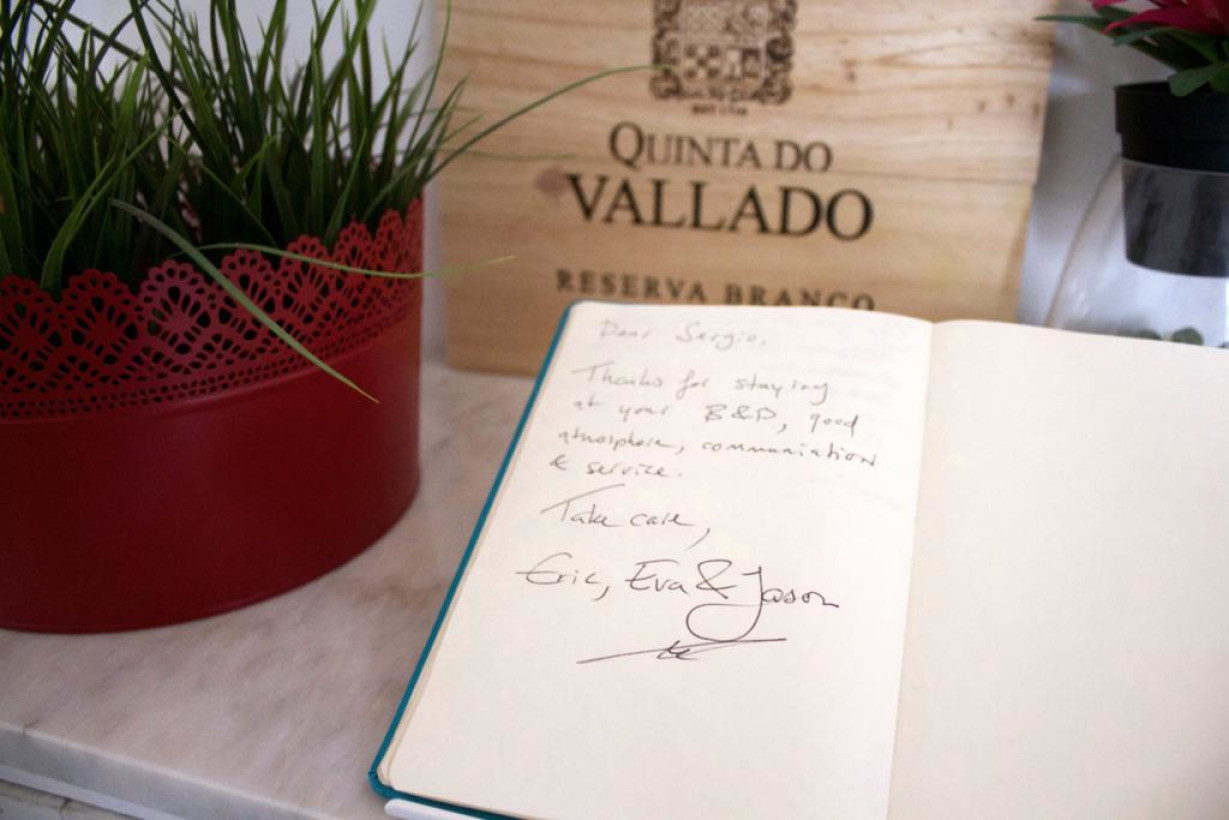 QUINTA DO
VALLADO
RESERVA BRANCO
Dear Sergio,
Thanks for staying
at your B&B, good
atmosphere, communiation
& service.
Take care,
Eric, Eva & Jason